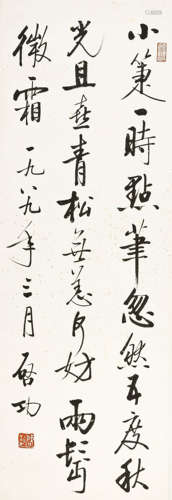 小箑一時點筆忽然五度秋
光且喜青松無恙何妨兩鬢
微霜一九八九年三月啟功